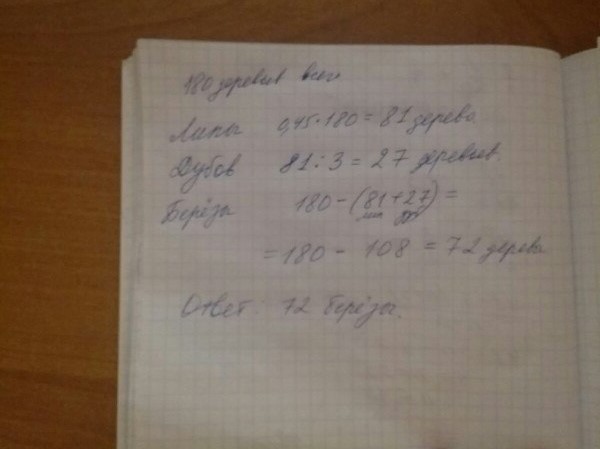 180 деревьев всего
Липы 0,45·180 = 81 дерево
Дубов 81:3 = 27 деревьев
Берёзы 180-(81+27)=
лип дуб
=180 - 108 = 72 дерева
Ответ: 72 берёзы.